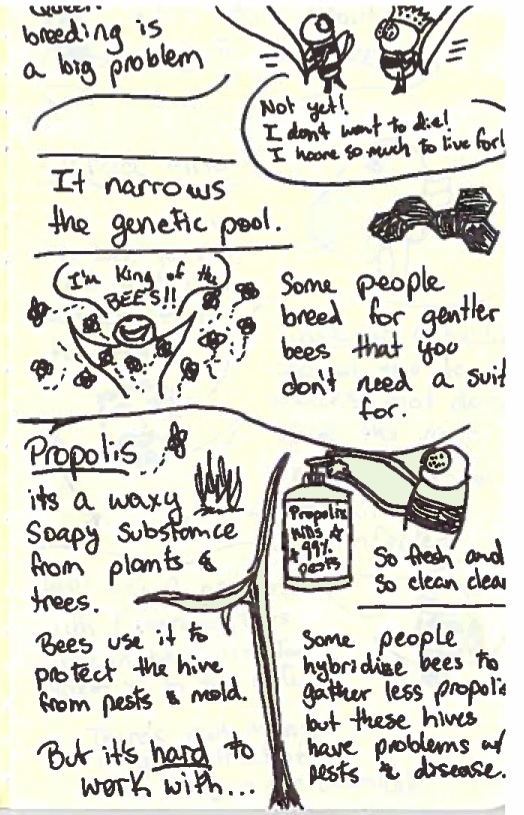 Queen
breeding is
a big problem
Not yet!
I don't want to die!
I have so much to live for!
It narrows
the genetic pool.
I'm King of the
BEES!!
Some people
breed for gentler
bees that you
don't need a suit
for.
Propolis
its a waxy
Soapy Substance
from plants &
trees.
Propolis
Kills
99%
pests
So fresh and
So clean clean
Bees use it to
protect the hive
from pests & mold.
But it's hard to
work with...
Some people
hybridize bees to
gather less propolis
but these hives
have problems w/
pests & disease.